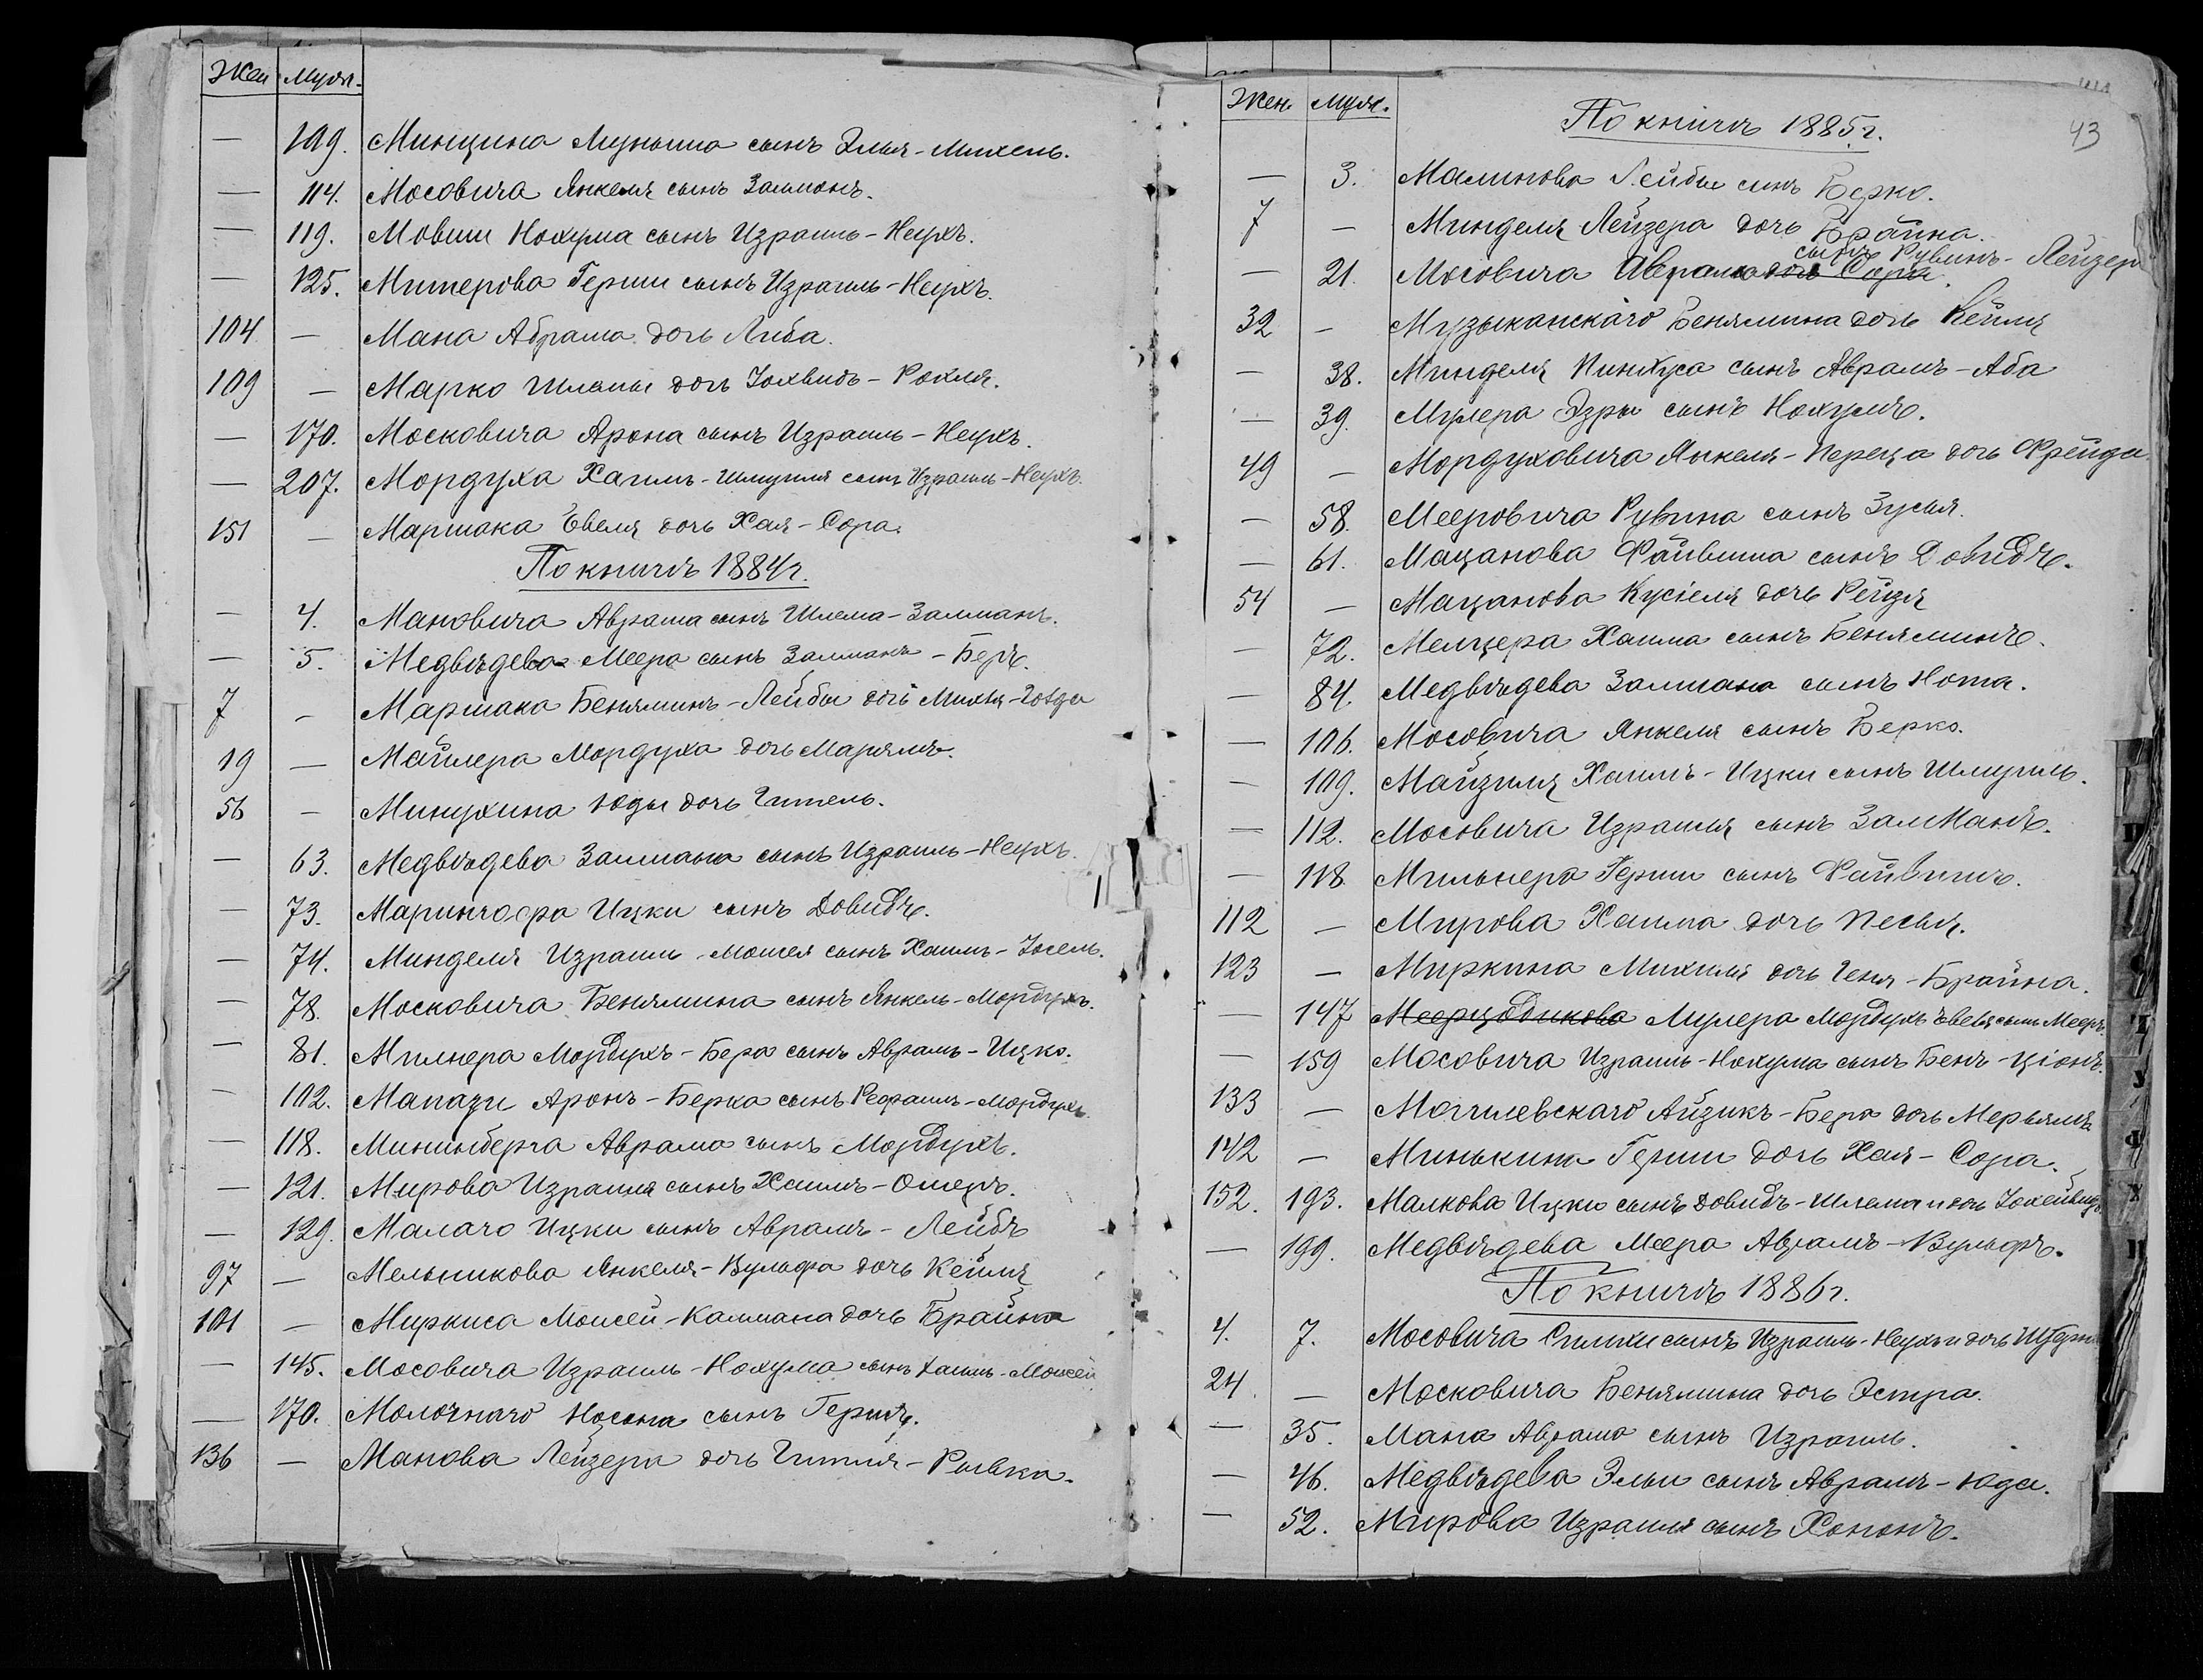 Жен Муж.
— 109. Минцина Мунына сынъ Элья-Михель.
— 114. Мосовича Янкеля сынъ Залманъ.
— 119. Мовши Нохума сынъ Израиль-Неухъ.
— 125. Митерова Герши сынъ Израиль-Неухъ.
104 — Мана Абрама дочь Либа.
109 — Марко Шлемы дочь Іохвидъ-Рохля.
— 170. Московича Арона сынъ Израиль-Неухъ.
— 207. Мордуха Хаимъ-Шмуиля сынъ Израиль-Неухъ.
151 — Маршака Евеля дочь Хая-Сора.
По книгѣ 1884 г.
— 4. Мановича Аврама сынъ Шлема-Залманъ.
— 5. Медвѣдева Меера сынъ Залманъ-Беръ.
7 — Маршака Беняминъ-Лейбы дочь Михля-
19 — Майлера Мордуха дочь Марьямъ.
56 — Минухина Юды дочь Гитель.
— 63. Медвѣдева Залмана сынъ Израиль-Неухъ.
— 73. Марингофа Ицки сынъ Довидъ.
— 74. Минделя Израиль-Мошея сынъ Хаимъ-Іосель.
— 78. Московича Бенямина сынъ Янкель-Мордухъ.
— 81. Милнера Мордухъ-Бера сынъ Аврамъ-Ицко.
— 102. Мапази Аронъ-Берка сынъ Рефаилъ-Мордухъ.
— 118. Мининберга Аврама сынъ Мордухъ.
— 121. Мирова Израиля сынъ Хаимъ-Омеръ.
— 129. Малаго Ицки сынъ Аврамъ-Лейбъ
97 — Мельникова Янкеля-Вульфа дочь Кейля
101 — Миркиса Моисей-Калмана дочь Брайна
— 145. Мосовича Израиль-Нохума сынъ Хаимъ-Моисей
— 170. Молочнаго Носона сынъ Гершъ.
136 — Манова Лейзера дочь Гитля-Рывка.
43
Жен. Муж.
По книгѣ 1885 г.
— 3. Малинова Лейбы сынъ Берко.
7 — Минделя Лейзера дочь Брайна.
сынъ Рувинъ-Лейзер
— 21. Мосовича Аврама дочь Сора.
32 — Музыканскаго Бенямина дочь Кейля
— 38. Минделя Пинхуса сынъ Аврамъ-Аба
— 39. Мулера Эзры сынъ Нохумъ.
49 — Мордуховича Янкеля-Переца дочь Фрейда.
— 58. Мееровича Рувина сынъ Зусья.
— 61. Мацанова Файвиша сынъ Довидъ.
54 — Мацанова Кусіеля дочь Рейзя
— 72. Мелцера Хаима сынъ Беняминъ.
— 84. Медвѣдева Залмана сынъ Нота.
— 106. Мосовича Янкеля сынъ Берко.
— 109. Майзиля Хаимъ-Ицки сынъ Шмуиль.
— 112. Мосовича Израиля сынъ Залманъ.
— 118. Мильнера Герши сынъ Файвишъ.
112 — Мирова Хаима дочь Песья.
123 — Миркина Михиля дочь Геня-Брайна.
— 147 Меерцодикова Мулера Мордухъ Евеля сынъ Мееръ.
— 159 Мосовича Израиль-Нохума сынъ Бенъ-Ціонъ.
133 — Могилевскаго Айзикъ-Бера дочь Мерьямъ
142 — Минькина Герши дочь Хая-Сора.
152. 193. Малкова Ицки сынъ Довидъ-Шлема и дочь Іохейвидъ
— 199. Медвѣдева Меера Аврамъ-Вульфъ.
По книгѣ 1886 г.
4. 7. Мосовича Симхи сынъ Израиль-Неухъ и дочь
24. — Московича Бенямина дочь Эстра.
— 35. Мана Аврама сынъ Израиль.
— 46. Медвѣдева Эльи сынъ Аврамъ-Юда.
— 52. Мирова Израиля сынъ Хононъ.